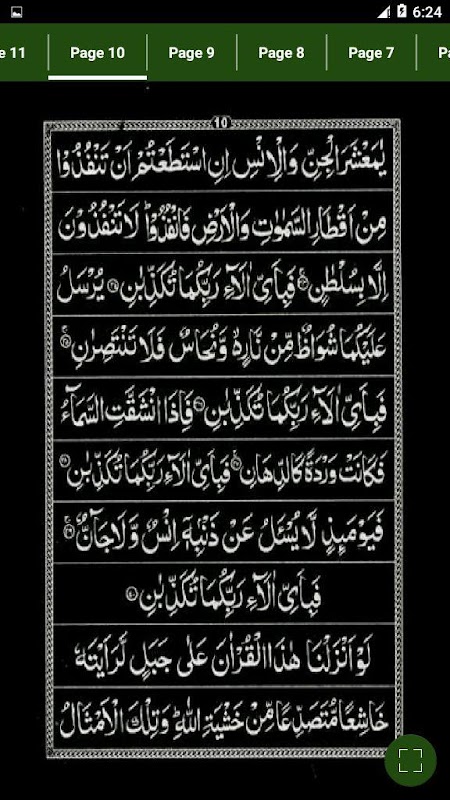 6:24
e 11 Page 10 Page 9 Page 8 Page 7 Pa
10
يٰمَعْشَرَ الْجِنِّ وَالْاِنْسِ اِنِ اسْتَطَعْتُمْ اَنْ تَنْفُذُوْا
مِنْ اَقْطَارِ السَّمٰوٰتِ وَالْاَرْضِ فَانْفُذُوْاؕ لَا تَنْفُذُوْنَ
اِلَّا بِسُلْطٰنٍ فَبِاَىِّ اٰلَآءِ رَبِّكُمَا تُكَذِّبٰنِ يُرْسَلُ
عَلَيْكُمَا شُوَاظٌ مِّنْ نَّارٍ وَّنُحَاسٌ فَلَا تَنْتَصِرٰنِ
فَبِاَىِّ اٰلَآءِ رَبِّكُمَا تُكَذِّبٰنِ فَاِذَا انْشَقَّتِ السَّمَآءُ
فَكَانَتْ وَرْدَةً كَالدِّهَانِ فَبِاَىِّ اٰلَآءِ رَبِّكُمَا تُكَذِّبٰنِ
فَيَوْمَئِذٍ لَّا يُسْـَٔلُ عَنْ ذَنْۢبِهٖۤ اِنْسٌ وَّلَا جَآنٌّ
فَبِاَىِّ اٰلَآءِ رَبِّكُمَا تُكَذِّبٰنِ
لَوْ اَنْزَلْنَا هٰذَا الْقُرْاٰنَ عَلٰى جَبَلٍ لَّرَاَيْتَهٗ
خَاشِعًا مُّتَصَدِّعًا مِّنْ خَشْيَةِ اللّٰهِؕ وَتِلْكَ الْاَمْثَالُ